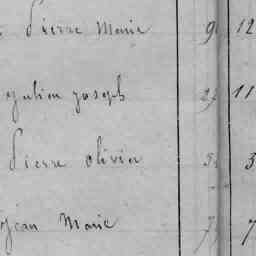 Pierre Marie 9 12
Julien joseph 11
Pierre olivier 3
jean Marie 7